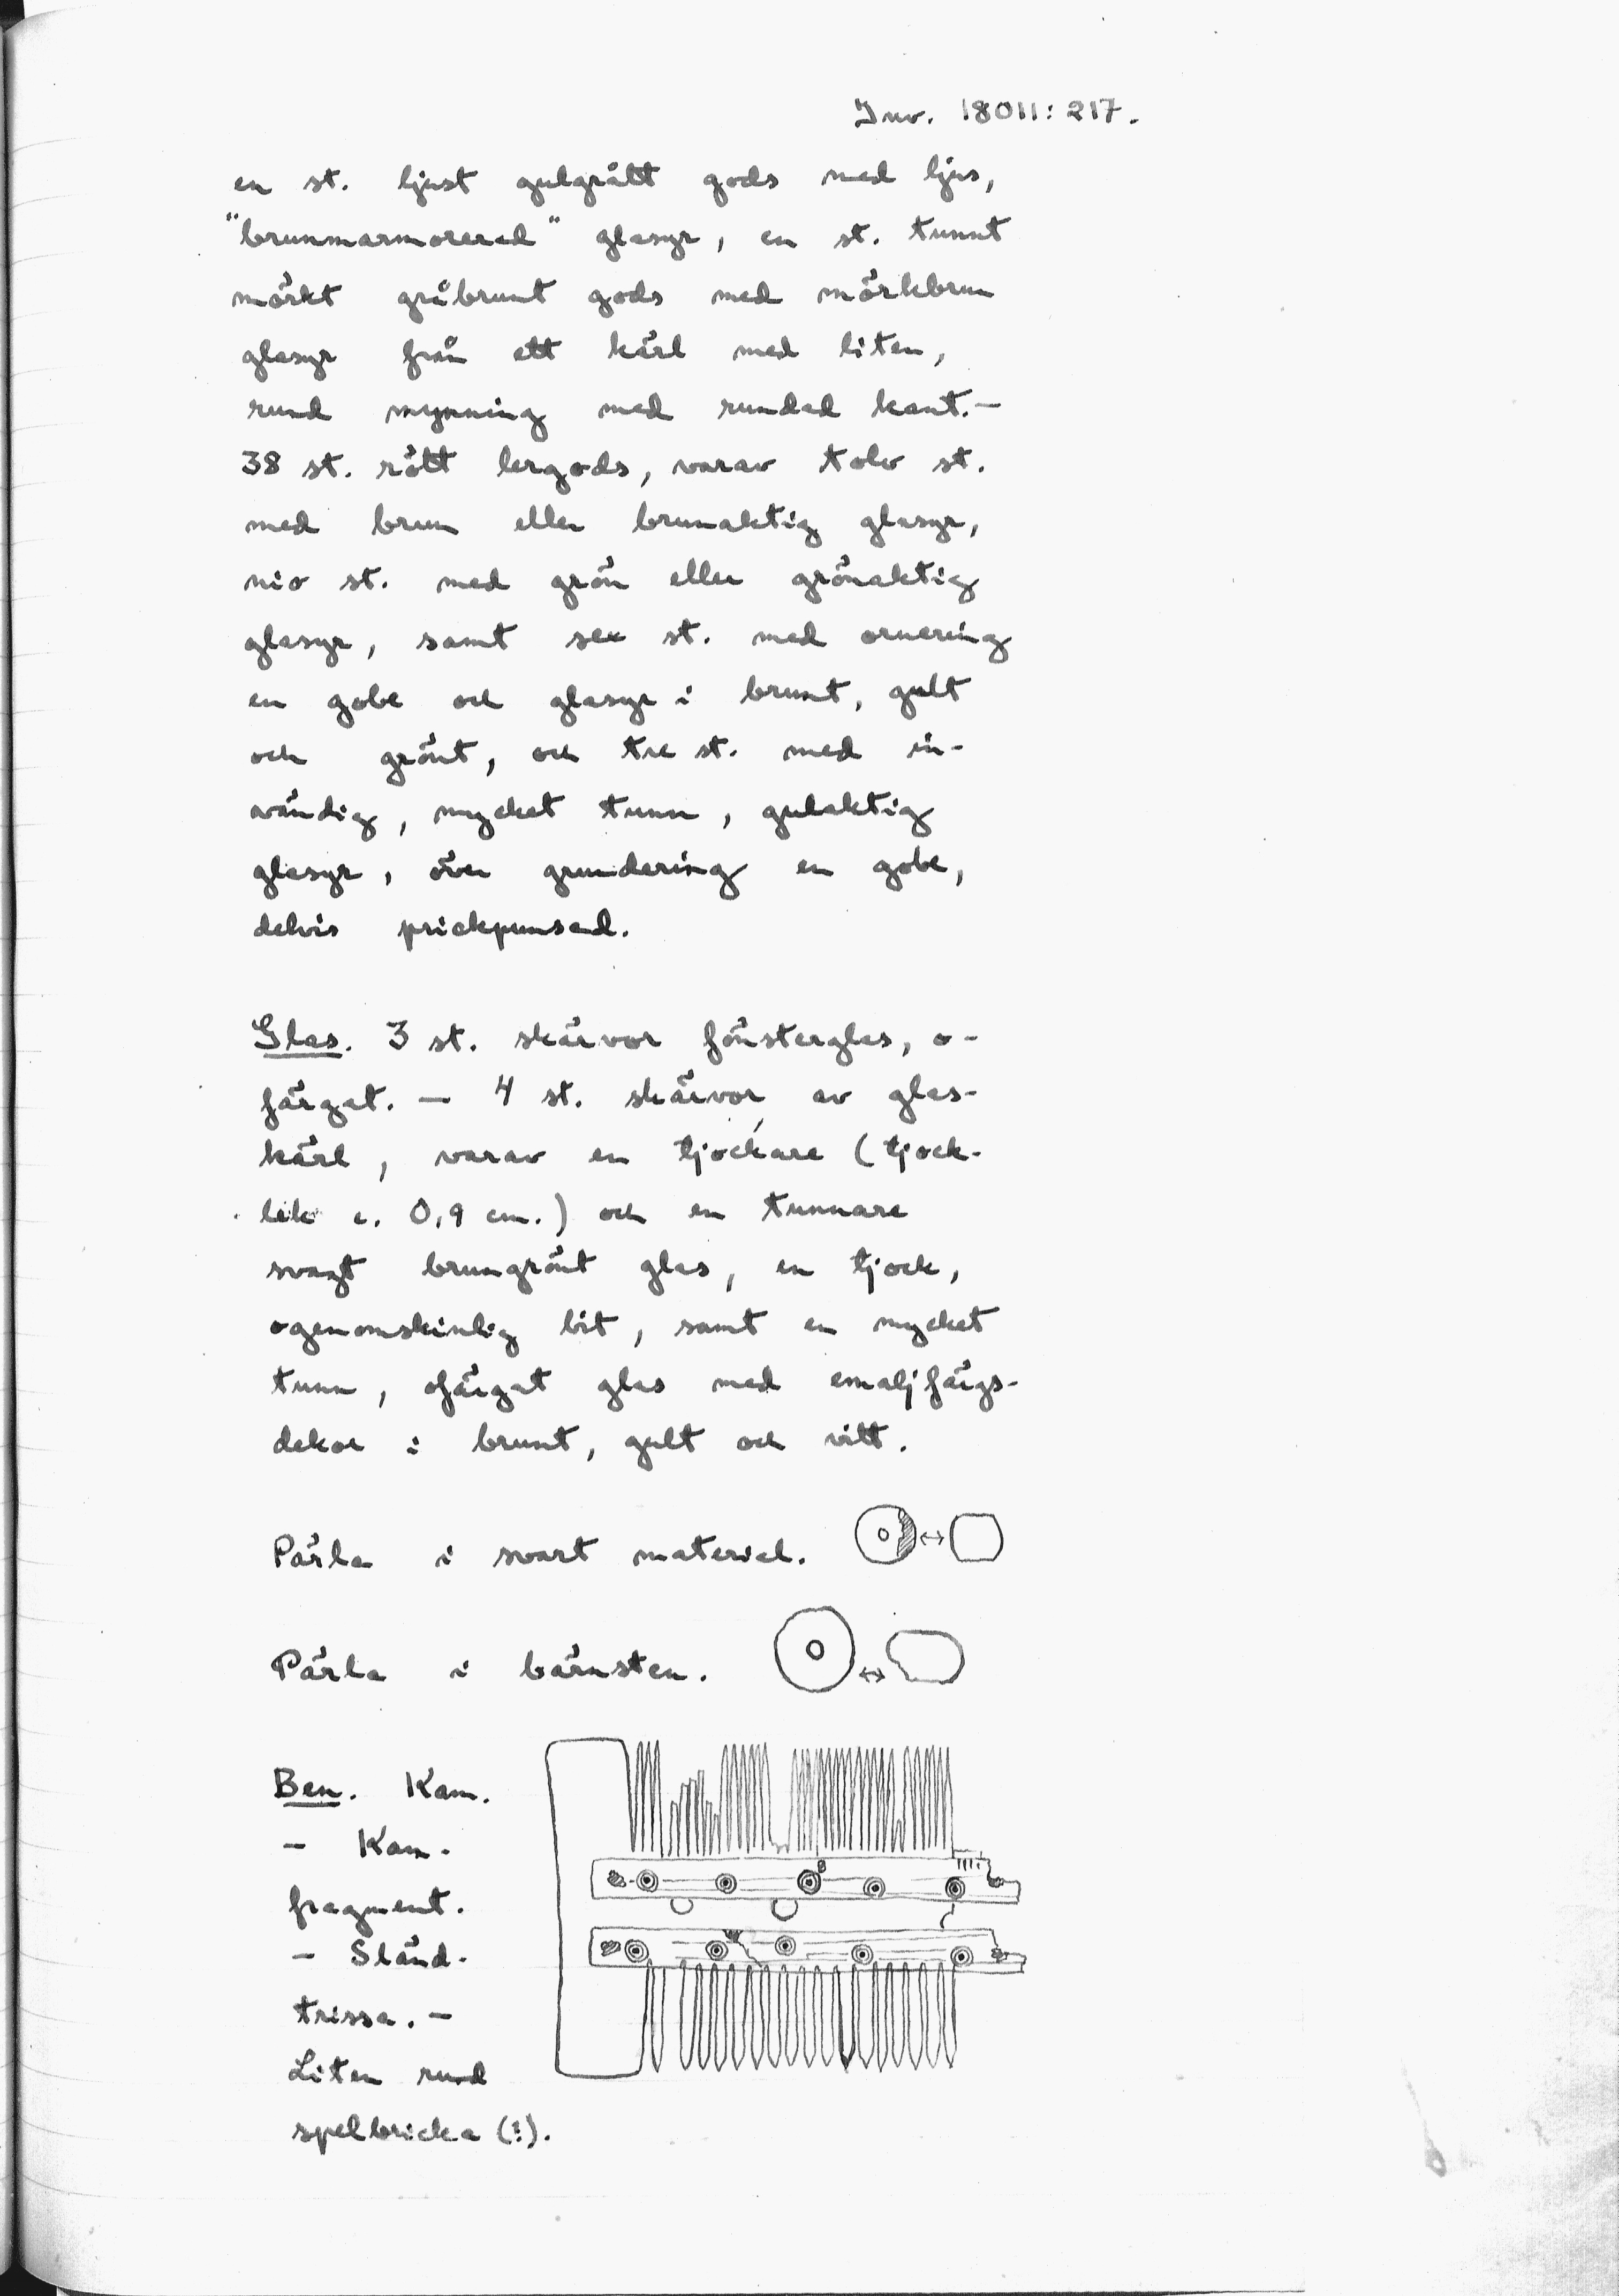 Inv. 18011:217.
en st. ljust gulgrått gods med ljus,
"brunmarmorerad" glasyr, en st. tunnt
mörkt gråbrunt gods med mörkbrun
glasyr från ett kärl med liten,
rund mynning med rundad kant.—
38 st. rött lergods, varav tolv st.
med brun eller brunaktig glasyr,
nio st. med grön eller grönaktig
glasyr, samt sex st. med ornering
en gobe och glasyr i brunt, gult
och grönt, och tre st. med in-
vändig, mycket tunn, gulaktig
glasyr, över grundering en gobe,
delvis prickpunsad.
Glas. 3 st. skärvor fönsterglas, o-
färgat. — 4 st. skärvor av glas-
kärl, varav en tjockare (tjock-
lek c. 0,9 cm.) och en tunnare
svagt brungrönt glas, en tjock,
ogenomskinlig bit, samt en mycket
tunn, ofärgat glas med emaljfärgs-
dekor i brunt, gult och vitt.
Pärla i svart material.
Pärla i bärnsten.
Ben. Kam.
— Kam-
fragment.
— Sländ-
trissa. —
Liten rund
spelbricka (?).